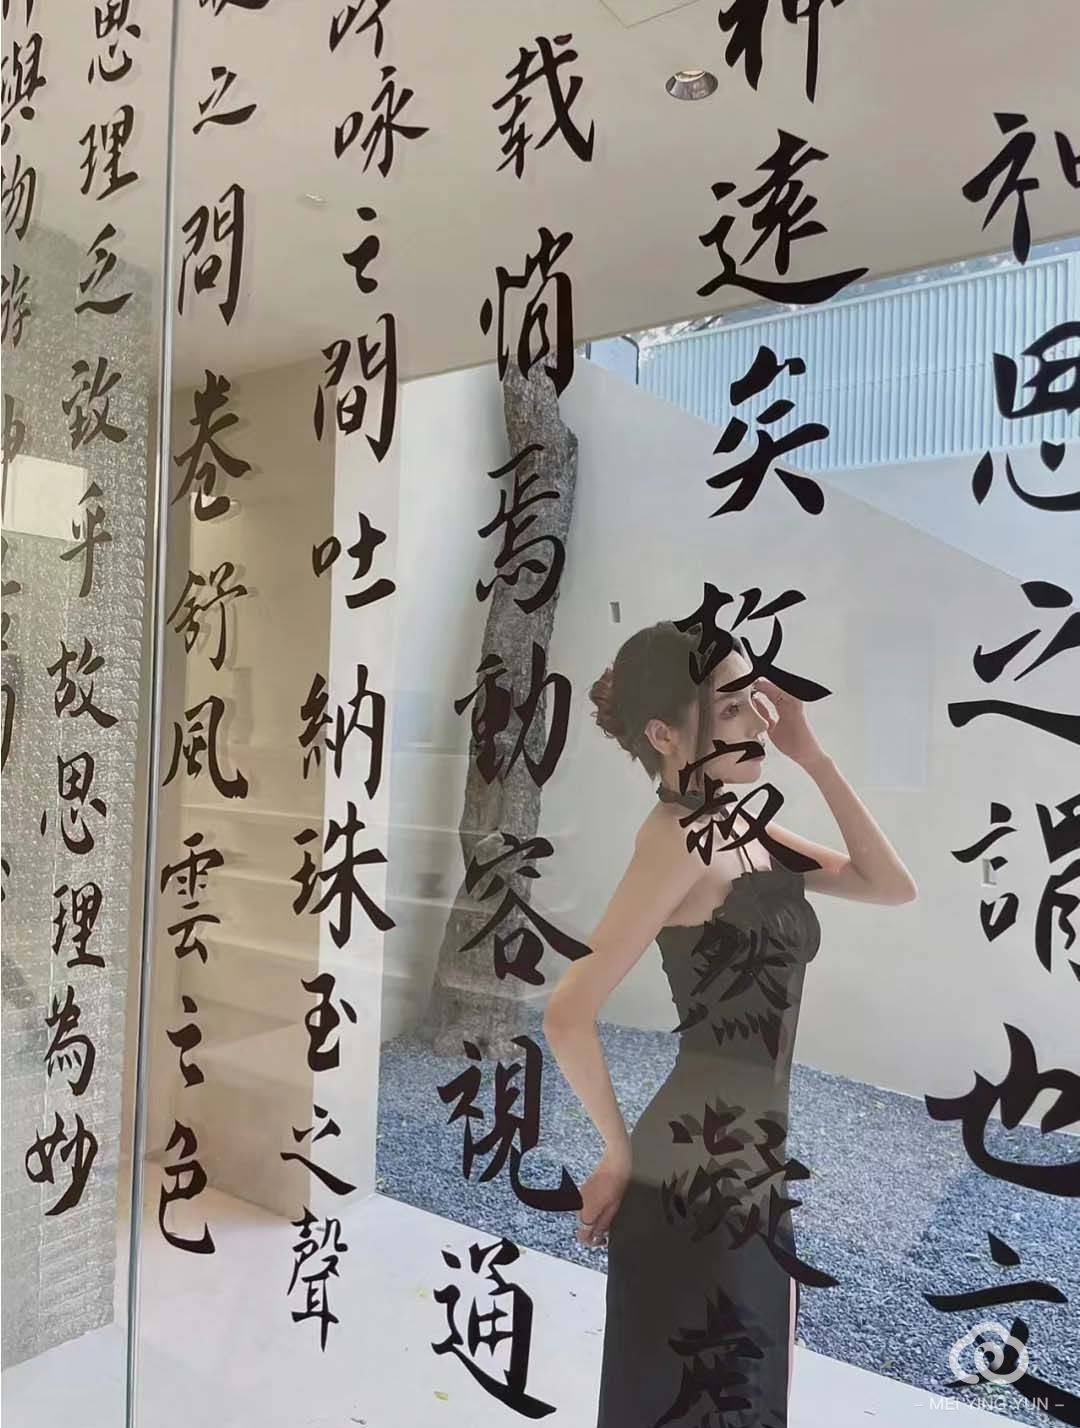 神思之謂也文
神遠矣故寂然凝慮
载悄焉動容視通
吟咏之間吐納珠玉之聲
之問卷舒風雲之色
思理之致乎故思理為妙
與物游
– MEI YING YUN –